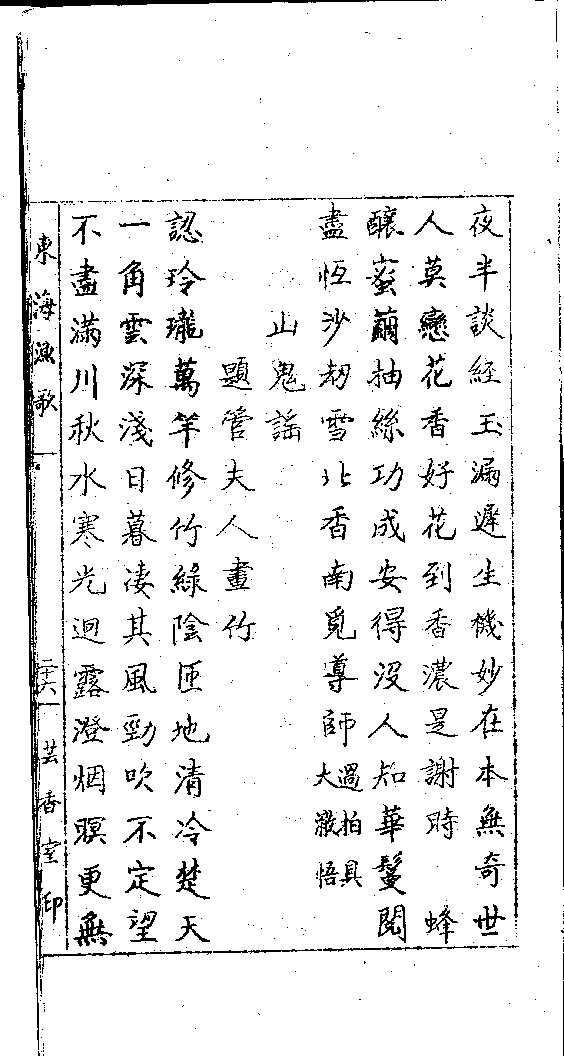 夜半談經玉漏遲生機妙在本無奇世
人莫戀花香好花到香濃是謝時　蜂
釀蜜繭抽絲功成安得沒人知華鬘閱
盡恆沙劫雪北香南覓導師過拍具
大澈悟
山鬼謠
題管夫人畫竹
認玲瓏萬竿修竹綠陰匝地清冷楚天
一角雲深淺日暮凄其風勁吹不定望
不盡滿川秋水寒光迥露澄烟暝更無
東海漁歌一
二十六
芸香室印